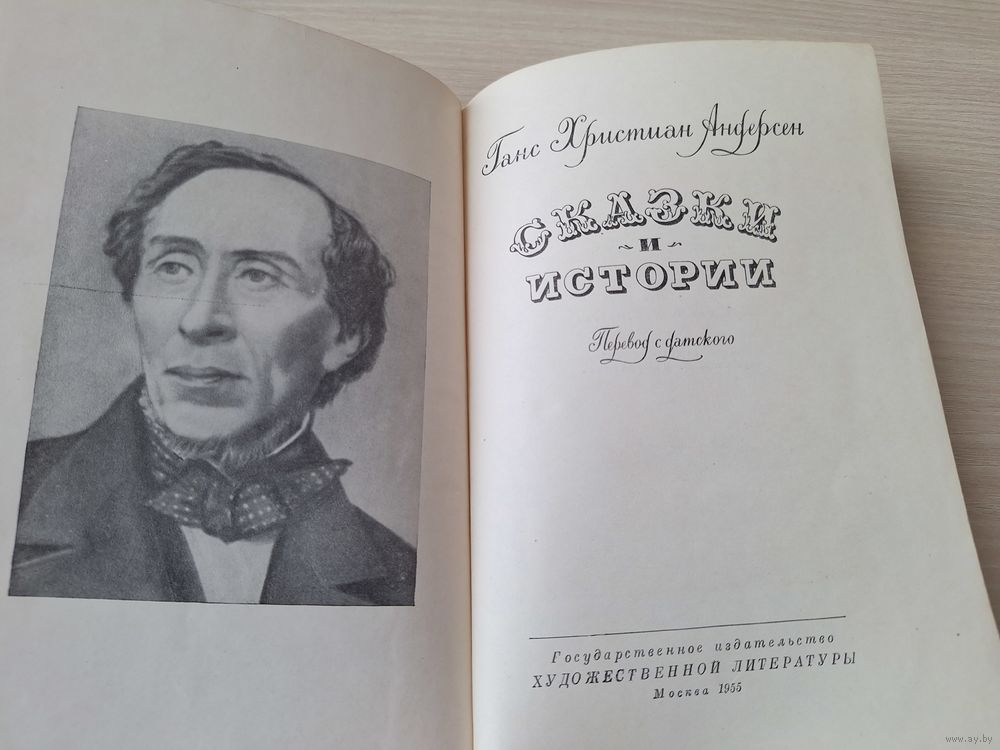 Ганс Христиан Андерсен
СКАЗКИ
~ И ~
ИСТОРИИ
Перевод с датского
Государственное издательство
ХУДОЖЕСТВЕННОЙ ЛИТЕРАТУРЫ
Москва 1955
www.ay.by